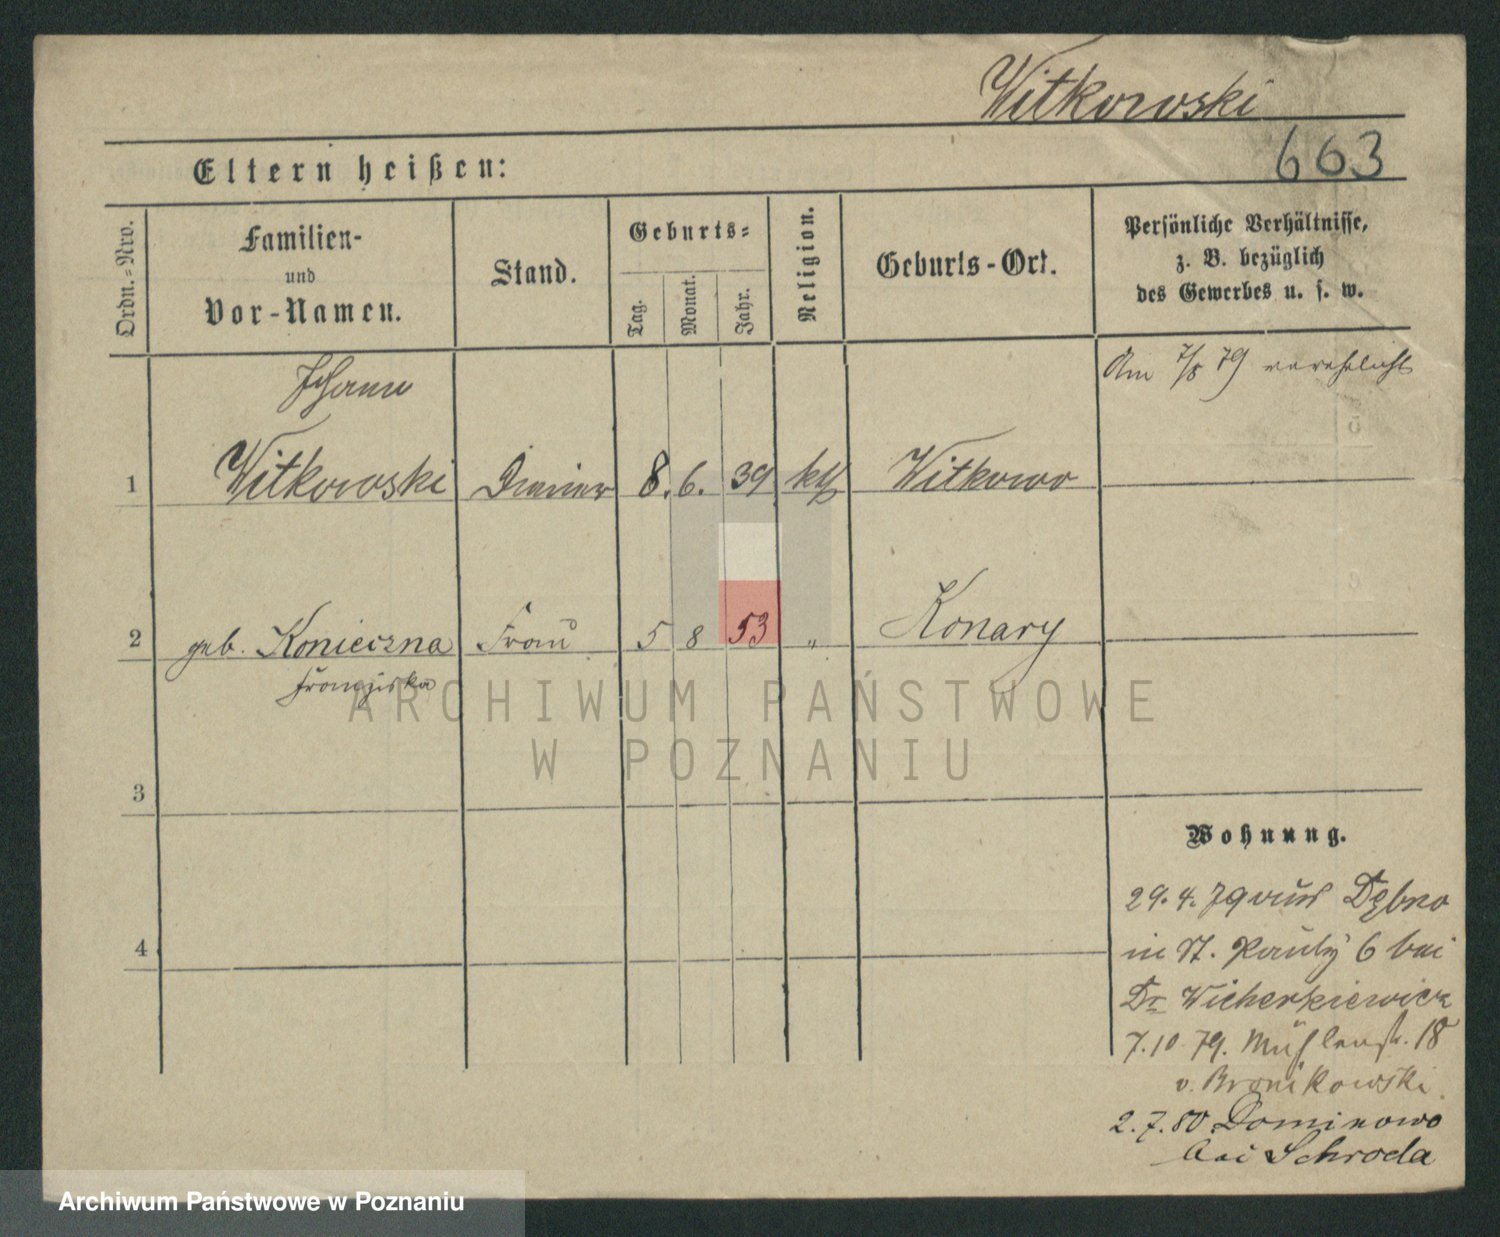 Witkowski
663
Eltern heißen:
Ordn.=Nro.
Familien-
und
Vor-Namen.
Stand.
Geburts=
Tag.
Monat.
Jahr.
Religion.
Geburts-Ort.
Persönliche Verhältnisse,
z. B. bezüglich
des Gewerbes u. s. w.
Johann
Am 7/8 79 verehelicht
1 Witkowski Diener 8. 6. 39 kth Witkowo
2 geb. Konieczna Frau 5 8 53 " Konary
Franziska
ARCHIWUM PAŃSTWOWE
W POZNANIU
3
Wohnung.
29. 4. 79 aus Dębno
4
in St. Pauly 6 bei
Dr Wicherkiewicz
7. 10 79. Mühlenstr. 18
v. Bronikowski
2. 7. 80 Dominowo
bei Schroda
Archiwum Państwowe w Poznaniu